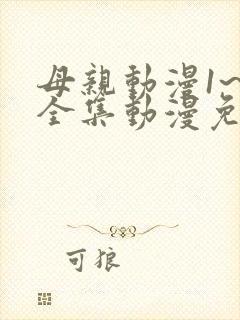 母親動漫1~
全集動漫免
可狼